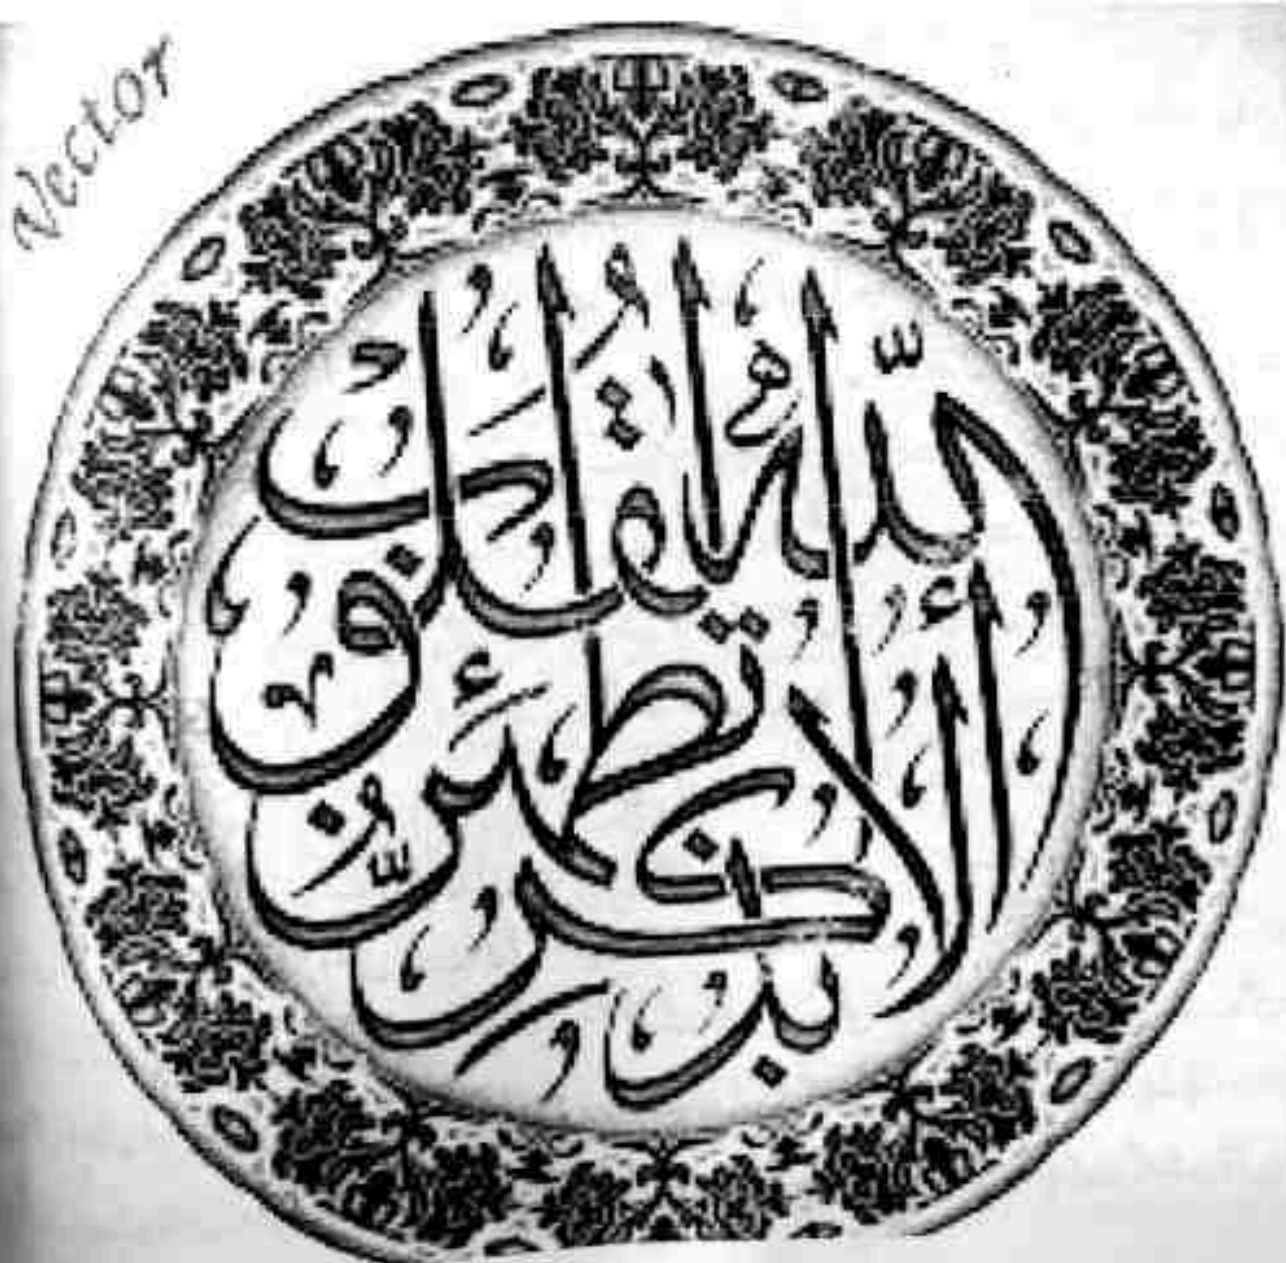 Vector
ألا بذكر الله تطمئن القلوب